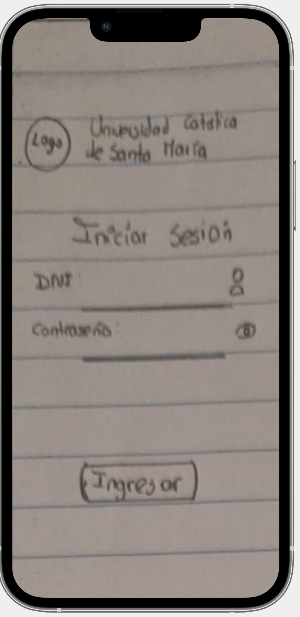 Logo
Universidad Católica
de Santa María
Iniciar Sesión
DNI:
Contraseña:
Ingresar